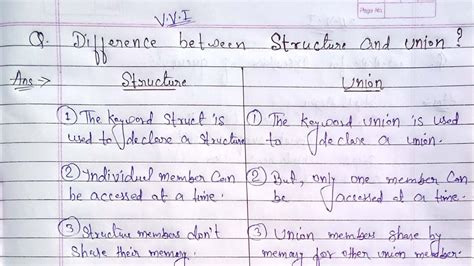 Page No.
V.V.I
Q. Difference between Structure and union?
Ans :->
Structure
Union
① The keyword struct is
used to declare a structure
② Individual member can
be accessed at a time.
③ Structure members don't
share their memory.
① The keyword union is used
to declare a union.
② But, only one member can
be accessed at a time.
③ Union members share by
memory for other union member.